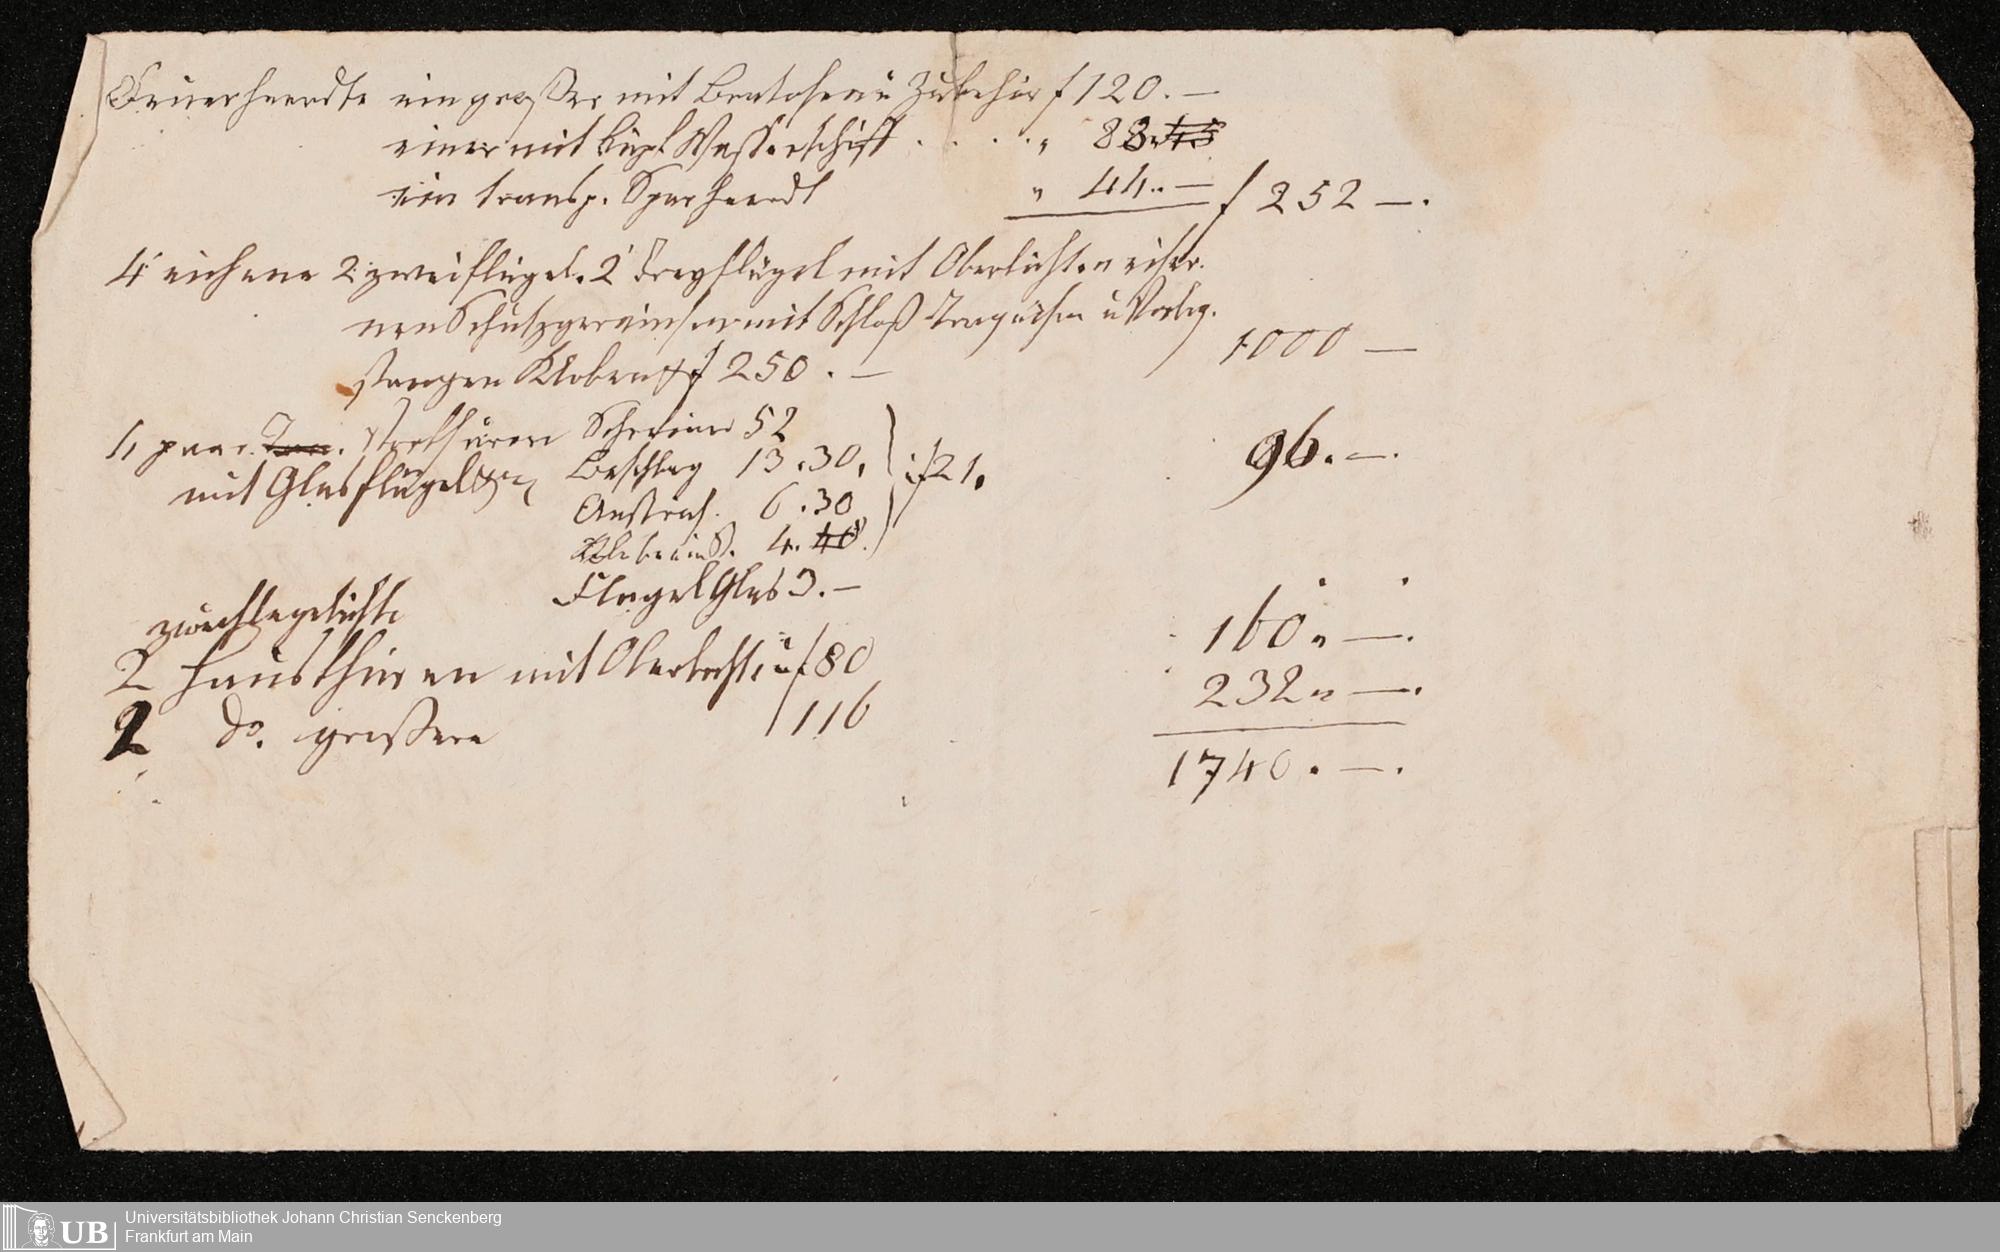 Feuerheerdte ein großer mit Bratofen u Zubehör f 120. —
einer mit kupf Wasserschiff . . . . „ 88.
ein transp. Sparheerdt „ 44. — f 252 — .
4 eichene 2 zweiflügel. 2 Dreyflügel mit Oberlichten eiser.
nen mit Schloß u Vorleg.
stangen Kloben f 250 . — 1000 —
4 paar
mit Glasflügel
Schreiner 52
Beschlag 13 . 30.
Anstrich. 6 . 30
4. 40.
Flügel Glas 3. —
f 21.
96. — .
2 Hausthüren mit Oberlicht u f 80 160 „ — .
2 do. großere f 116 232 „ — .
1740 . — .
UB
Universitätsbibliothek Johann Christian Senckenberg
Frankfurt am Main